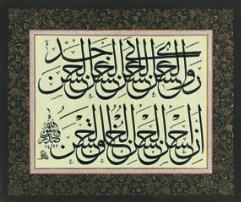 روى الحسن عن ابي الحسن عن جد الحسن
ان احسن الحسن الخلق الحسن